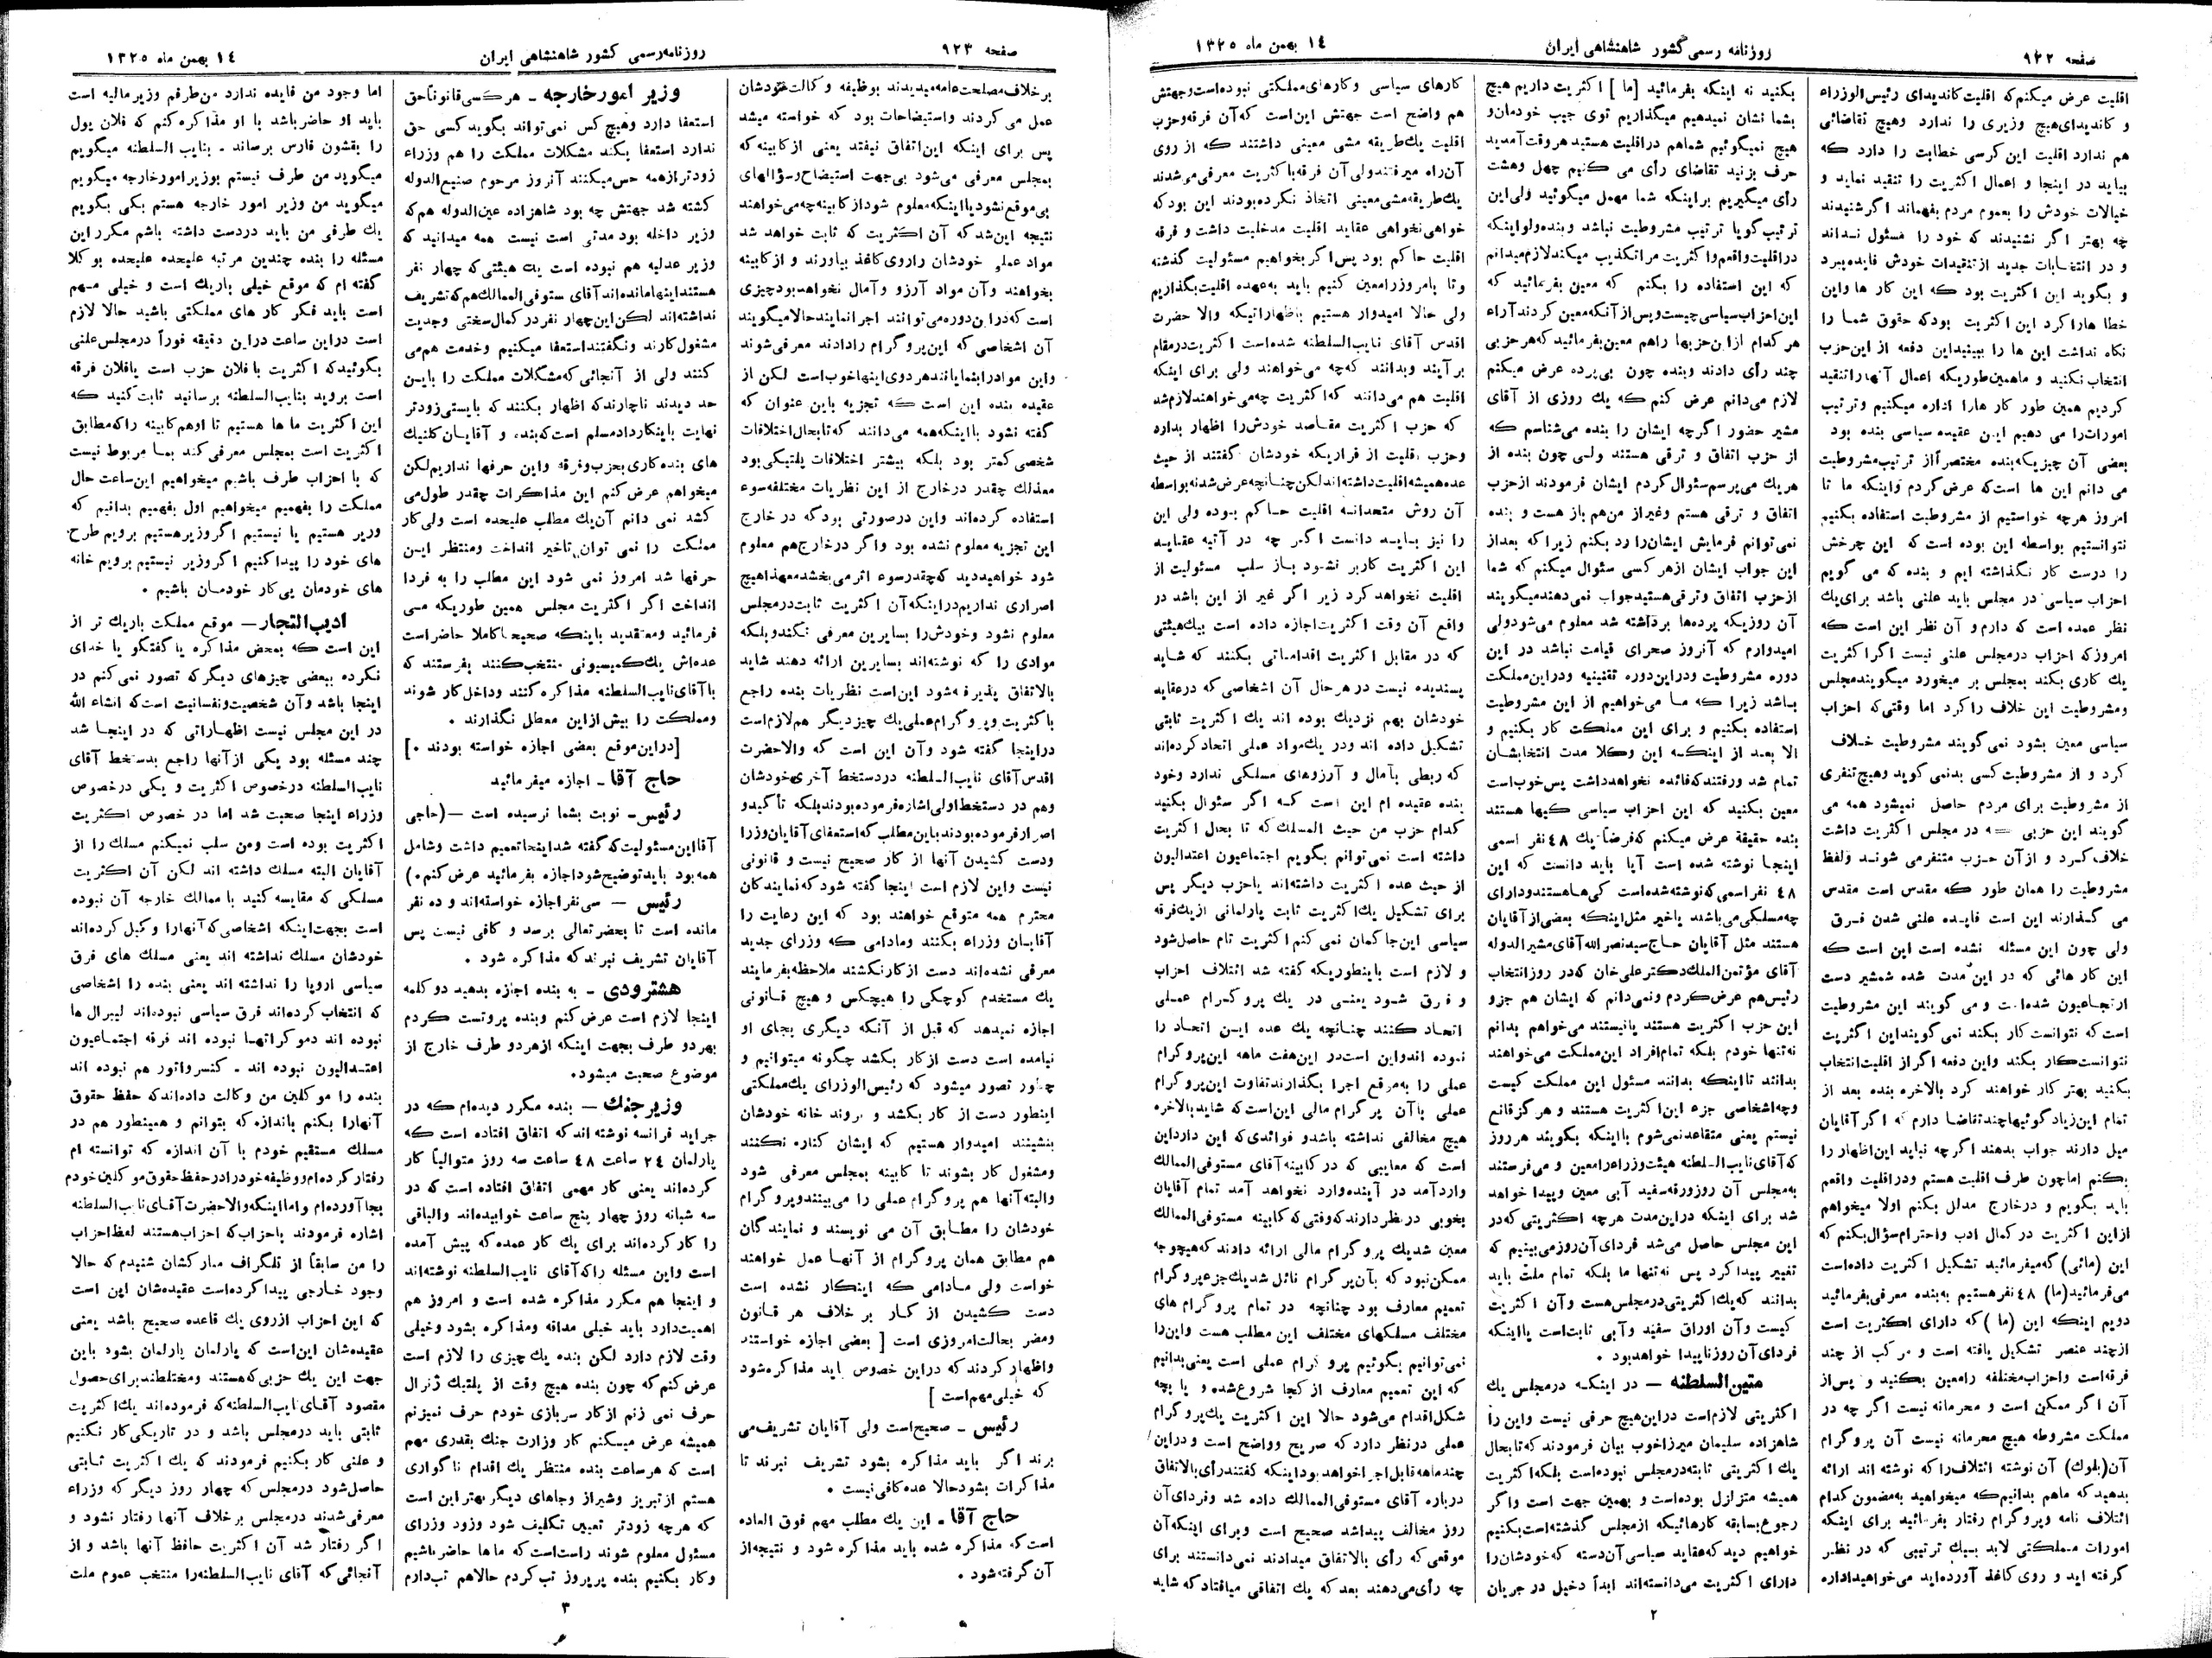 صفحه ۹۲۲
روزنامه رسمی کشور شاهنشاهی ایران
۱٤ بهمن ماه ۱۳۲۵
اقلیت عرض میکنم که اقلیت کاندیدای رئیس‌الوزراء
و کاندیدای هیچ وزیری را ندارد وهیچ تقاضائی
هم ندارد اقلیت این کرسی خطابت را دارد که
بیاید در اینجا و اعمال اکثریت را تنقید نماید و
خیالات خودش را بعموم مردم بفهماند اگر شنیدند
چه بهتر اگر نشنیدند که خود را مسئول نداند
و در انتخابات جدید از تنقیدات خودش فایده ببرد
و بگوید این اکثریت بود که این کار ها واین
خطا هارا کرد این اکثریت بود که حقوق شما را
نگاه نداشت این ها را ببینید این دفعه از این حزب
انتخاب نکنید و ماهمین طوریکه اعمال آنها را تنقید
کردیم همین طور کار هارا اداره میکنیم وترتیب
امورات را می دهیم این عقیده سیاسی بنده بود
بعضی آن چیزیکه بنده مختصراً از ترتیب مشروطیت
می دانم این ها است که عرض کردم واینکه ما تا
امروز هرچه خواستیم از مشروطیت استفاده بکنیم
نتوانستیم بواسطه این بوده است که این چرخش
را درست کار نگذاشته ایم و بنده که می گویم
احزاب سیاسی در مجلس باید علنی باشد برای یک
نظر عمده است که دارم و آن نظر این است که
امروز که احزاب درمجلس علنی نیست اگر اکثریت
یک کاری بکند بمجلس بر میخورد میگویند مجلس
ومشروطیت این خلاف را کرد اما وقتی که احزاب
سیاسی معین بشود نمی گویند مشروطیت خلاف
کرد و از مشروطیت کسی بدنمی گوید وهیچ تنفری
از مشروطیت برای مردم حاصل نمیشود همه می
گویند این حزبی که در مجلس اکثریت داشت
خلاف کرد و از آن حزب متنفر می شوند ولفظ
مشروطیت را همان طور که مقدس است مقدس
می گذارند این است فایده علنی شدن فرق
ولی چون این مسئله نشده است این است که
این کار هائی که در این مدت شده شمشیر دست
ارتجاعیون شده است و می گویند این مشروطیت
است که نتوانست کار بکند نمی گویند این اکثریت
نتوانست کار بکند واین دفعه اگر از اقلیت انتخاب
بکنید بهتر کار خواهند کرد بالاخره بنده بعد از
تمام این زیاد گوئیها چند تقاضا دارم که اگر آقایان
میل دارند جواب بدهند اگرچه نباید این اظهار را
بکنم اما چون طرف اقلیت هستم ودر اقلیت واقعم
باید بگویم و درخارج مدلل بکنم اولا میخواهم
از این اکثریت در کمال ادب واحترام سؤال بکنم که
این (مائی) که میفرمائید تشکیل اکثریت داده است
می فرمائید (ما) ٤۸ نفر هستیم به بنده معرفی بفرمائید
دویم اینکه این (ما) که دارای اکثریت است
از چند عنصر تشکیل یافته است و مرکب از چند
فرقه است واحزاب مختلفه را معین بکنید و پس از
آن اگر ممکن است و محرمانه نیست اگر چه در
مملکت مشروطه هیچ محرمانه نیست آن پروگرام
آن (بلوک) آن نوشته ائتلاف را که نوشته اند ارائه
بدهید که ماهم بدانیم که میخواهید به مضمون کدام
ائتلاف نامه وپروگرام رفتار بفرمائید برای اینکه
امورات مملکتی لابد بیک ترتیبی که در نظر
گرفته اید و روی کاغذ آورده اید می خواهید اداره
بکنید نه اینکه بفرمائید [ما] اکثریت داریم هیچ
بشما نشان نمیدهیم میگذاریم توی جیب خودمان و
هیچ نمیگوئیم شماهم در اقلیت هستید هر وقت آمدید
حرف بزنید تقاضای رأی می کنیم چهل وهشت
رأی میگیریم بر اینکه شما مهمل میگوئید ولی این
ترتیب گویا ترتیب مشروطیت نباشد و بنده ولو اینکه
در اقلیت واقعم واکثریت مرا تکذیب میکند لازم میدانم
که این استفاده را بکنم که معین بفرمائید که
این احزاب سیاسی چیست وپس از آنکه معین کردند آراء
هر کدام از این حزبها را هم معین بفرمائید که هر حزبی
چند رأی دادند وبنده چون بی پرده عرض میکنم
لازم می دانم عرض کنم که یک روزی از آقای
مشیر حضور اگرچه ایشان را بنده می شناسم که
از حزب اتفاق و ترقی هستند ولی چون بنده از
هر یک می پرسم سئوال کردم ایشان فرمودند از حزب
اتفاق و ترقی هستم وغیر از من هم باز هست و بنده
نمی توانم فرمایش ایشان را رد بکنم زیرا که بعد از
این جواب ایشان از هر کسی سئوال میکنم که شما
از حزب اتفاق وترقی هستید جواب نمی دهند میگویند
آن روزیکه پرده ها برداشته شد معلوم می شود ولی
امیدوارم که آنروز صحرای قیامت نباشد در این
دوره مشروطیت ودر این دوره تقنینیه ودر این مملکت
باشد زیرا که ما می خواهیم از این مشروطیت
استفاده بکنیم و برای این مملکت کار بکنیم و
الا بعد از اینکه این وکلا مدت انتخابشان
تمام شد ورفتند که فائده نخواهد داشت پس خوب است
معین بکنید که این احزاب سیاسی کیها هستند
بنده حقیقة عرض میکنم که فرضاً یک ٤۸ نفر اسمی
اینجا نوشته شده است آیا باید دانست که این
٤۸ نفر اسمی که نوشته شده است کی ها هستند ودارای
چه مسلکی می باشند یاخیر مثل اینکه بعضی از آقایان
هستند مثل آقایان حاج سید نصرالله آقای مشیرالدوله
آقای مؤتمن الملک دکتر علی خان که در روز انتخاب
رئیس هم عرض کردم ونمی دانم که ایشان هم جزو
این حزب اکثریت هستند یا نیستند می خواهم بدانم
نه تنها خودم بلکه تمام افراد این مملکت می خواهند
بدانند تا اینکه بدانند مسئول این مملکت کیست
وچه اشخاصی جزء این اکثریت هستند و هرگز قانع
نیستم یعنی متقاعد نمی شوم با اینکه بگویند هر روز
که آقای نایب السلطنه هیئت وزراء را معین و می فرستند
به مجلس آن روز ورقه سفید آبی معین وپیدا خواهد
شد برای اینکه در این مدت هرچه اکثریتی که در
این مجلس حاصل می شد فردای آن روز می بینیم که
تغییر پیدا کرد پس نه تنها ما بلکه تمام ملت باید
بدانند که یک اکثریتی در مجلس هست وآن اکثریت
کیست وآن اوراق سفید وآبی ثابت است یا اینکه
فردای آن روز ناپیدا خواهد بود .
متین السلطنه — در اینکه درمجلس یک
اکثریتی لازم است در این هیچ حرفی نیست واین را
شاهزاده سلیمان میرزا خوب بیان فرمودند که تابحال
یک اکثریتی ثابته در مجلس نبوده است بلکه اکثریت
همیشه متزلزل بوده است و بهمین جهت است واگر
رجوع بسابقه کارهائیکه از مجلس گذشته است بکنیم
خواهیم دید که عقاید سیاسی آن دسته که خودشان را
دارای اکثریت می دانسته اند ابداً دخیل در جریان
کارهای سیاسی وکارهای مملکتی نبوده است وجهتش
هم واضح است جهتش این است که آن فرقه وحزب
اقلیت یک طریقه مشی معینی داشتند که از روی
آن راه میرفتند ولی آن فرقه با کثریت معرفی می شدند
یک طریقه مشی معینی اتخاذ نکرده بودند این بود که
خواهی نخواهی عقاید اقلیت مدخلیت داشت و فرقه
اقلیت حاکم بود پس اگر بخواهیم مسئولیت گذشته
وتا بامروز را معین کنیم باید به عهده اقلیت بگذاریم
ولی حالا امیدوار هستیم باظهاراتیکه والا حضرت
اقدس آقای نایب السلطنه شده است اکثریت در مقام
بر آیند وبدانند که چه می خواهند ولی برای اینکه
اقلیت هم می دانند که اکثریت چه می خواهند لازم شد
که حزب اکثریت مقاصد خودش را اظهار بدارد
وحزب اقلیت از قراریکه خودشان گفتند از حیث
عده همیشه اقلیت داشته اند لکن چنانچه عرض شد نه بواسطه
آن روش متحدانه اقلیت حاکم بوده ولی این
را نیز باید دانست اگر چه در آتیه عقاید
این اکثریت کاربر نشود باز سلب مسئولیت از
اقلیت نخواهد کرد زیر اگر غیر از این باشد در
واقع آن وقت اکثریت اجازه داده است بیک هیئتی
که در مقابل اکثریت اقداماتی بکنند که شاید
پسندیده نیست در هر حال آن اشخاصی که در عقاید
خودشان بهم نزدیک بوده اند یک اکثریت ثابتی
تشکیل داده اند ودر یک مواد عملی اتحاد کرده اند
که ربطی بآمال و آرزوهای مسلکی ندارد وخود
بنده عقیده ام این است که اگر سئوال بکنید
کدام حزب من حیث المسلک که تا بحال اکثریت
داشته است نمی توانم بگویم اجتماعیون اعتدالیون
از حیث عده اکثریت داشته اند یا حزب دیگر پس
برای تشکیل یک اکثریت ثابت پارلمانی از یک فرقه
سیاسی این جا گمان نمی کنم اکثریت تام حاصل شود
و لازم است باینطوریکه گفته شد ائتلاف احزاب
و فرق شود یعنی در یک پروگرام عملی
اتحاد کنند چنانچه یک عده این اتحاد را
نموده اند واین است در این هفت ماهه این پروگرام
عملی را به موقع اجرا بگذارند تفاوت این پروگرام
عملی باآن پرگرام مالی این است که شاید بالاخره
هیچ مخالفی نداشته باشد و فوائدی که این دارد این
است که معایبی که در کابینه آقای مستوفی الممالک
وارد آمد در آینده وارد نخواهد آمد تمام آقایان
بخوبی در نظر دارند که وقتی که کابینه مستوفی الممالک
معین شد یک پروگرام مالی ارائه دادند که هیچوجه
ممکن نبود که بآن پرگرام نائل شد یک جزء پروگرام
تعمیم معارف بود چنانچه در تمام پروگرام های
مختلف مسلکهای مختلف این مطلب هست واین را
نمی توانیم بگوئیم پروگرام عملی است یعنی بدانیم
که این تعمیم معارف از کجا شروع شده و یا بچه
شکل اقدام می شود حالا این اکثریت یک پروگرام
عملی در نظر دارد که صریح و واضح است ودر این
چند ماهه قابل اجرا خواهد بود اینکه گفتند رأی بالاتفاق
درباره آقای مستوفی الممالک داده شد وفردای آن
روز مخالف پیدا شد صحیح است وبرای اینکه آن
موقعی که رأی بالاتفاق میدادند نمی دانستند برای
چه رأی می دهند بعد که یک اتفاقی میافتاد که شاید
۲
صفحه ۹۲۳
روزنامه رسمی کشور شاهنشاهی ایران
۱٤ بهمن ماه ۱۳۲۵
برخلاف مصلحت عامه میدیدند بوظیفه و کالت خودشان
عمل می کردند واستیضاحات بود که خواسته میشد
پس برای اینکه این اتفاق نیفتد یعنی از کابینه که
بمجلس معرفی می شود بی جهت استیضاح وسؤالهای
بی موقع نشود یا اینکه معلوم شود از کابینه چه می خواهند
نتیجه این شد که آن اکثریت که ثابت خواهد شد
مواد عملی خودشان را روی کاغذ بیاورند و از کابینه
بخواهند وآن مواد آرزو وآمال نخواهد بود چیزی
است که در این دوره می توانند اجرا نمایند حالا میگویند
آن اشخاصی که این پروگرام را دادند معرفی شوند
واین مواد را بنمایانند هر دوی اینها خوب است لکن از
عقیده بنده این است که تجزیه باین عنوان که
گفته نشود با اینکه همه می دانند که تابحال اختلافات
شخصی کمتر بود بلکه بیشتر اختلافات پلتیکی بود
معذلک چقدر در خارج از این نظریات مختلفه سوء
استفاده کرده اند واین در صورتی بود که در خارج
این تجزیه معلوم نشده بود واگر در خارج هم معلوم
شود خواهید دید که چقدر سوء اثر می بخشد معهذا هیچ
اصراری نداریم در اینکه آن اکثریت ثابت در مجلس
معلوم نشود وخودش را بسایرین معرفی نکند وبلکه
موادی را که نوشته اند بسایرین ارائه دهند شاید
بالاتفاق پذیرفته شود این است نظریات بنده راجع
باکثریت وپروگرام عملی یک چیز دیگر هم لازم است
در اینجا گفته شود وآن این است که والاحضرت
اقدس آقای نایب السلطنه در دستخط آخری خودشان
وهم در دستخط اولی اشاره فرموده بودند بلکه تأکید و
اصرار فرموده بودند باین مطلب که استعفای آقایان وزرا
ودست کشیدن آنها از کار صحیح نیست و قانونی
نیست واین لازم است اینجا گفته شود که نمایندگان
محترم همه متوقع خواهند بود که این رعایت را
آقایان وزراء بکنند ومادامی که وزرای جدید
معرفی نشده اند دست از کار نکشند ملاحظه بفرمایند
یک مستخدم کوچکی را هیچکس و هیچ قانونی
اجازه نمیدهد که قبل از آنکه دیگری بجای او
نیامده است دست از کار بکشد چگونه میتوانیم و
چطور تصور میشود که رئیس الوزرای یک مملکتی
اینطور دست از کار بکشد و بروند خانه خودشان
بنشینند امیدوار هستیم که ایشان کناره نکنند
ومشغول کار بشوند تا کابینه بمجلس معرفی شود
والبته آنها هم پروگرام عملی را می بینند وپروگرام
خودشان را مطابق آن می نویسند و نمایندگان
هم مطابق همان پروگرام از آنها عمل خواهند
خواست ولی مادامی که اینکار نشده است
دست کشیدن از کار بر خلاف هر قانون
ومضر بحالت امروزی است [ بعضی اجازه خواستند
واظهار کردند که در این خصوص باید مذاکره شود
که خیلی مهم است ]
رئیس ـ صحیح است ولی آقایان تشریف می
برند اگر باید مذاکره بشود تشریف نبرند تا
مذاکرات بشود حالا عده کافی نیست .
حاج آقا ـ این یک مطلب مهم فوق العاده
است که مذاکره شده باید مذاکره شود و نتیجه از
آن گرفته شود .
وزیر امور خارجه ـ هر کسی قانوناً حق
استعفا دارد وهیچ کس نمی تواند بگوید کسی حق
ندارد استعفا بکند مشکلات مملکت را هم وزراء
زودتر از همه حس میکنند آنروز مرحوم صنیع الدوله
کشته شد جهتش چه بود شاهزاده عین الدوله هم که
وزیر داخله بود مدتی است نیست همه میدانید که
وزیر عدلیه هم نبوده است یک هیئتی که چهار نفر
هستند اینها مانده اند آقای مستوفی الممالک هم که تشریف
نداشته اند لکن این چهار نفر در کمال سختی وجدیت
مشغول کارند ونگفتند استعفا میکنیم وخدمت هم می
کنند ولی از آنجائی که مشکلات مملکت را باین
حد دیدند ناچارند که اظهار بکنند که بایستی زودتر
نهایت باینکار داد مسلم است که بنده و آقایان کلنیک
های بنده کاری بحزب وفرقه واین حرفها نداریم لکن
میخواهم عرض کنم این مذاکرات چقدر طول می
کشد نمی دانم آن یک مطلب علیحده است ولی کار
مملکت را نمی توان تاخیر انداخت ومنتظر این
حرفها شد امروز نمی شود این مطلب را به فردا
انداخت اگر اکثریت مجلس همین طوریکه می
فرمائید ومعتقدید باینکه صحیحاً کاملا حاضر است
عده اش یک کمیسیونی منتخب کنند بفرستند که
با آقای نایب السلطنه مذاکره کنند وداخل کار شوند
ومملکت را بیش از این معطل نگذارند .
[در این موقع بعضی اجازه خواسته بودند .]
حاج آقا ـ اجازه میفرمائید
رئیس ـ نوبت بشما نرسیده است —(حاجی
آقا این مسئولیت که گفته شد اینجا تعمیم داشت وشامل
همه بود باید توضیح شود اجازه بفرمائید عرض کنم.)
رئیس — سی نفر اجازه خواسته اند و ده نفر
مانده است تا بحضر تعالی برسد و کافی نیست پس
آقایان تشریف نبرند که مذاکره شود .
هشترودی ـ به بنده اجازه بدهید دو کلمه
اینجا لازم است عرض کنم وبنده پروتست کردم
بهر دو طرف بجهت اینکه از هر دو طرف خارج از
موضوع صحبت میشود.
وزیر جنگ — بنده مکرر دیده ام که در
جراید فرانسه نوشته اند که اتفاق افتاده است که
پارلمان ۲٤ ساعت ٤۸ ساعت سه روز متوالیاً کار
کرده اند یعنی کار مهمی اتفاق افتاده است که در
سه شبانه روز چهار پنج ساعت خوابیده اند والباقی
را کار کرده اند برای یک کار عمده که پیش آمده
است واین مسئله را که آقای نایب السلطنه نوشته اند
و اینجا هم مکرر مذاکره شده است و امروز هم
اهمیت دارد باید خیلی مداقه ومذاکره بشود وخیلی
وقت لازم دارد لکن بنده یک چیزی را لازم است
عرض کنم که چون بنده هیچ وقت از پلتیک ژنرال
حرف نمی زنم از کار سربازی خودم حرف نمیزنم
همیشه عرض میکنم کار وزارت جنگ بقدری مهم
است که هر ساعت بنده منتظر یک اقدام ناگواری
هستم از تبریز وشیراز وجاهای دیگر بهتر این است
که هرچه زودتر تعیین تکلیف شود وزود وزرای
مسئول معلوم شوند راست است که ما ها حاضر باشیم
وکار بکنیم بنده پریروز تب کردم حالاهم تب دارم
اما وجود من فایده ندارد من طرفم وزیر مالیه است
باید او حاضر باشد با او مذاکره کنم که فلان پول
را بقشون فارس برساند . بنایب السلطنه میگویم
میگوید من طرف نیستم بوزیر امور خارجه میگویم
میگوید من وزیر امور خارجه هستم بکی بگویم
یک طرفی من باید در دست داشته باشم مکرر این
مسئله را بنده چندین مرتبه علیحده علیحده بوکلا
گفته ام که موقع خیلی باریک است و خیلی مهم
است باید فکر کار های مملکتی باشید حالا لازم
است در این ساعت در این دقیقه فوراً در مجلس علنی
بگوئید که اکثریت با فلان حزب است یا فلان فرقه
است بروید بنایب السلطنه برسانید ثابت کنید که
این اکثریت ما ها هستیم تا او هم کابینه را که مطابق
اکثریت است بمجلس معرفی کند بما مربوط نیست
که با احزاب طرف باشیم میخواهیم این ساعت حال
مملکت را بفهمیم میخواهیم اول بفهمیم بدانیم که
وزیر هستیم یا نیستیم اگر وزیر هستیم برویم طرح
های خود را پیدا کنیم اگر وزیر نیستیم برویم خانه
های خودمان پی کار خودمان باشیم .
ادیب التجار — موقع مملکت باریک تر از
این است که بمحض مذاکره یا گفتگو یا خدای
نکرده ببعضی چیزهای دیگر که تصور نمی کنم در
اینجا باشد وآن شخصیت ونفسانیت است که انشاء الله
در این مجلس نیست اظهاراتی که در اینجا شد
چند مسئله بود یکی از آنها راجع بدستخط آقای
نایب السلطنه در خصوص اکثریت و یکی در خصوص
وزراء اینجا صحبت شد اما در خصوص اکثریت
اکثریت بوده است ومن سلب نمیکنم مسلک را از
آقایان البته مسلک داشته اند لکن آن اکثریت
مسلکی که مقایسه کنید با ممالک خارجه آن نبوده
است بجهت اینکه اشخاصی که آنها را وکیل کرده اند
خودشان مسلک نداشته اند یعنی مسلک های فرق
سیاسی اروپا را نداشته اند یعنی بنده را اشخاصی
که انتخاب کرده اند فرق سیاسی نبوده اند لیبرال ها
نبوده اند دموکراتها نبوده اند فرقه اجتماعیون
اعتدالیون نبوده اند . کنسرواتور هم نبوده اند
بنده را موکلین من وکالت داده اند که حفظ حقوق
آنها را بکنم باندازه که بتوانم و همینطور هم در
مسلک مستقیم خودم با آن اندازه که توانسته ام
رفتار کرده ام و وظیفه خود را در حفظ حقوق موکلین خودم
بجا آورده ام واما اینکه والاحضرت آقای نایب السلطنه
اشاره فرمودند با حزاب که احزاب هستند لفظ احزاب
را من سابقاً از تلگراف مبارکشان شنیدم که حالا
وجود خارجی پیدا کرده است عقیده شان این است
که این احزاب از روی یک قاعده صحیح باشد یعنی
عقیده شان این است که پارلمان پارلمان بشود باین
جهت این یک حزبی که هستند ومختلطند برای حصول
مقصود آقای نایب السلطنه که فرموده اند یک اکثریت
ثابتی باید در مجلس باشد و در تاریکی کار نکنیم
و علنی کار بکنیم فرمودند که یک اکثریت ثابتی
حاصل شود در مجلس که چهار روز دیگر که وزراء
معرفی شدند در مجلس بر خلاف آنها رفتار نشود و
اگر رفتار شد آن اکثریت حافظ آنها باشد و از
آنجائی که آقای نایب السلطنه را منتخب عموم ملت
۳